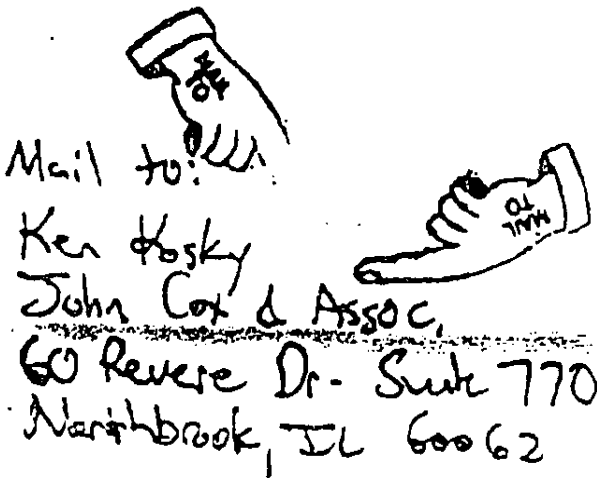 MAIL TO
Mail to:
MAIL TO
Ken Kosky
John Cox & Assoc.
60 Revere Dr- Suite 770
Northbrook, IL 60062